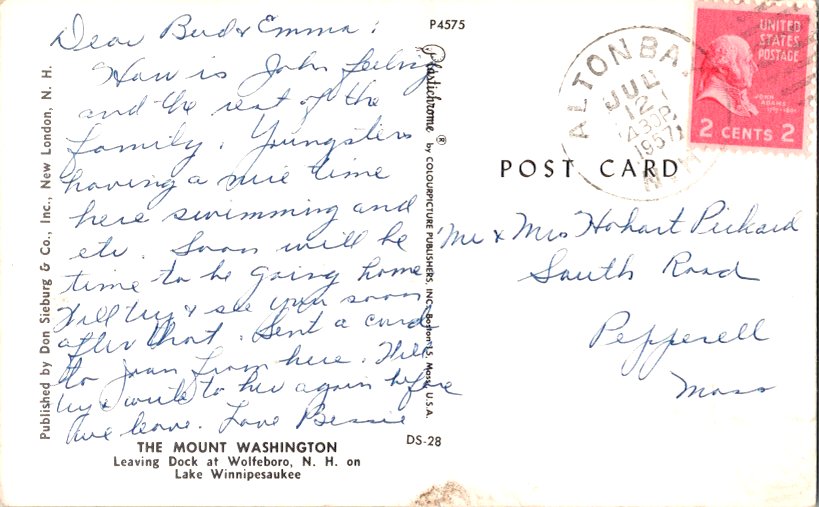 Dear Bud & Emma:
How is John feeling
and the rest of the
family. Youngsters
having a nice time
here swimming and
etc. Soon will be
time to be going home
Will try & see you soon
after that. Sent a card
to Joan from here. Will
try & write to her again before
we leave. Love Bessie
THE MOUNT WASHINGTON
Leaving Dock at Wolfeboro, N. H. on
Lake Winnipesaukee
DS-28
Published by Don Sieburg & Co., Inc., New London, N. H.
P4575
Plastichrome ® by COLOURPICTURE PUBLISHERS, INC., Boston 15, Mass., U.S.A.
POST CARD
ALTON BAY
JUL
12
430P
1957
N.H.
UNITED
STATES
POSTAGE
JOHN
ADAMS
2 CENTS 2
Mr & Mrs Hobart Pickard
South Road
Pepperell
Mass